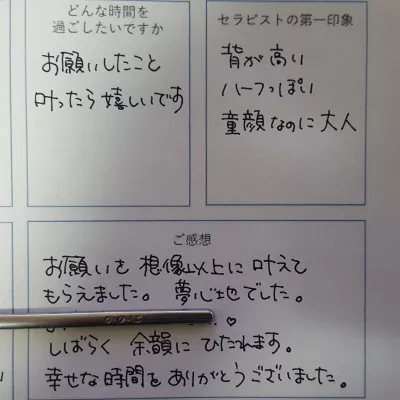 どんな時間を
過ごしたいですか
お願いしたこと
叶ったら嬉しいです
セラピストの第一印象
背が高い
ハーフっぽい
童顔なのに大人
ご感想
お願いを想像以上に叶えて
もらえました。夢心地でした。
♡
しばらく余韻にひたれます。
幸せな時間をありがとうございました。